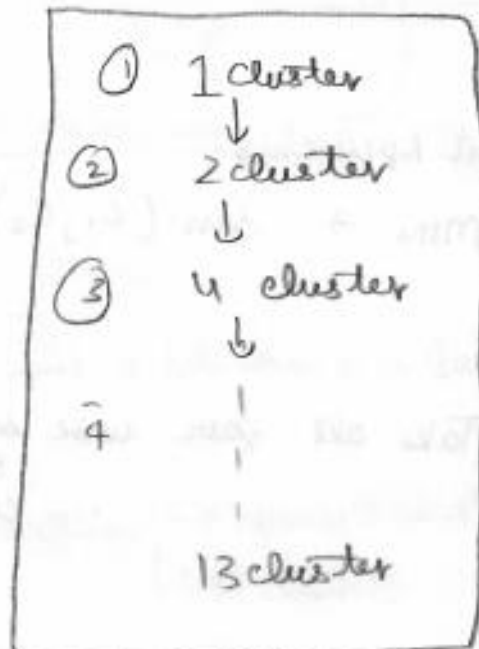 ① 1 cluster
↓
② 2 cluster
↓
③ 4 cluster
↓
4
13 cluster